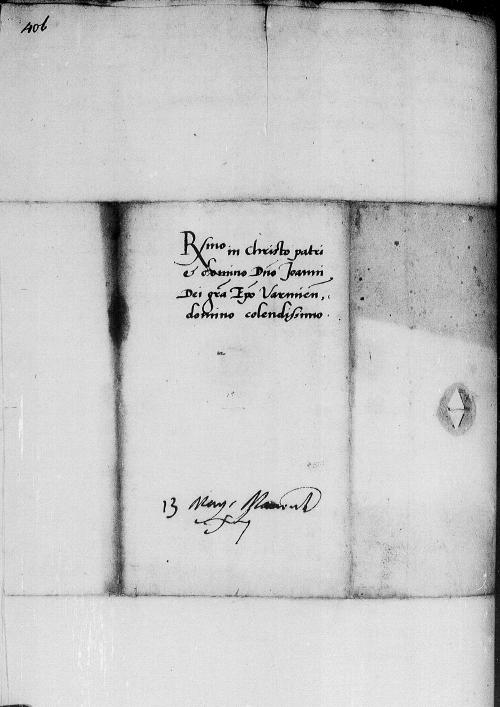 406
Rxmo in Christo patri
et domino Dno Joanni
Dei gra Epo Varmien,
domino colendissimo.
13 Maij